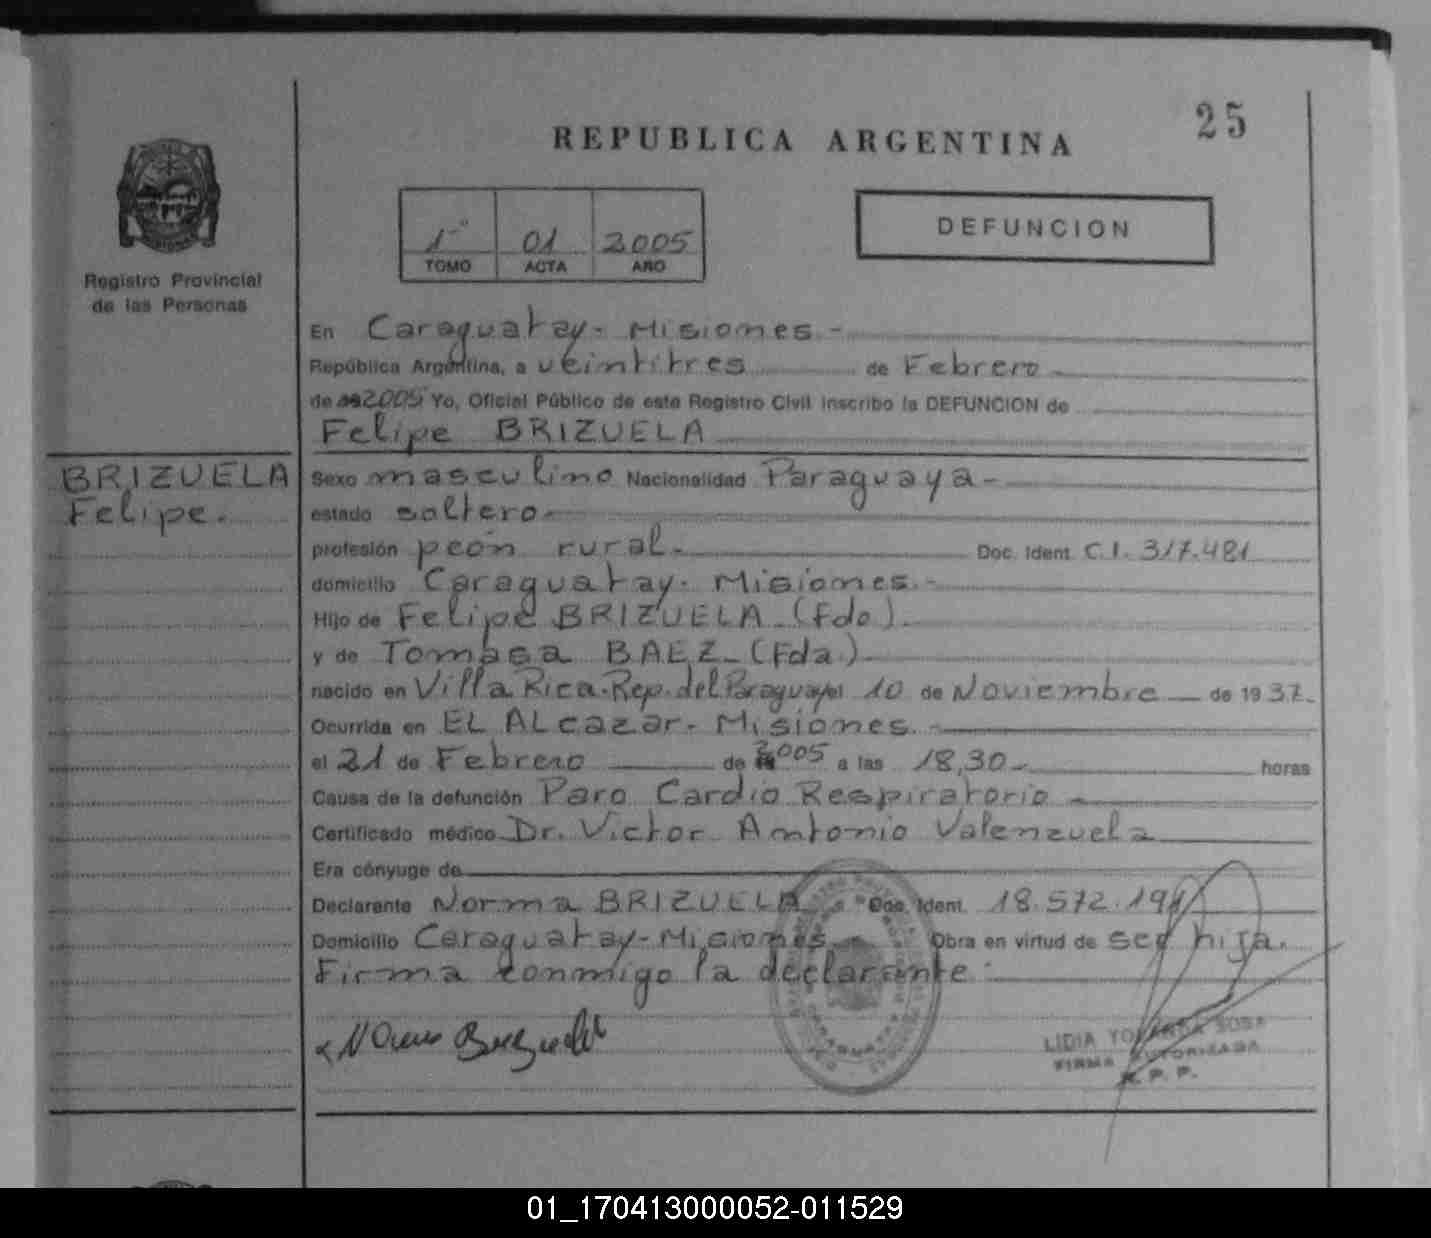 25
REPUBLICA ARGENTINA
1º 01 2005
TOMO ACTA AÑO
DEFUNCION
Registro Provincial
de las Personas
En Caraguatay - Misiones.-
República Argentina, a veintitres de Febrero
de 2005 Yo, Oficial Público de este Registro Civil inscribo la DEFUNCION de
Felipe BRIZUELA
BRIZUELA
Felipe.
Sexo masculino Nacionalidad Paraguaya -
estado soltero.
profesión peón rural. Doc. Ident. C.I. 317.481
domicilio Caraguatay - Misiones.-
Hijo de Felipe BRIZUELA - (Fdo).
y de Tomasa BAEZ - (Fda.)
nacido en Villa Rica. Rep. del Paraguay el 10 de Noviembre de 1937.
Ocurrida en EL ALcazar - Misiones.-
el 21 de Febrero de 2005 a las 18,30 - horas
Causa de la defunción Paro Cardio Respiratorio -
Certificado médico Dr. Victor Antonio Valenzuela
Era cónyuge de
Declarante Norma BRIZUELA - Doc. Ident. 18.572.191
Domicilio Caraguatay - Misiones - Obra en virtud de ser hija.
Firma conmigo la declarante -
LIDIA YOLANDA SOSA
FIRMA AUTORIZADA
R. P. P.
01_170413000052-011529